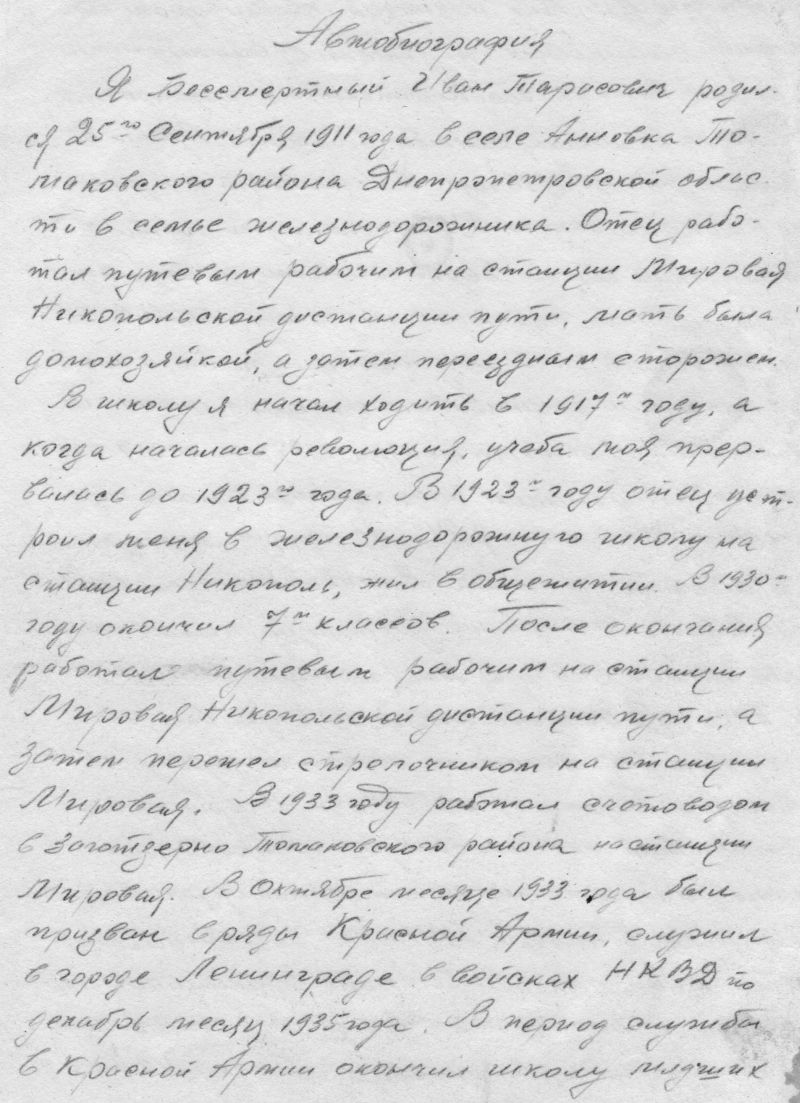 Автобиография
Я Бессмертный Иван Тарасович родил-
ся 25го Сентября 1911 года в селе Анновка То-
маковского района Днепропетровской облас-
ти в семье железнодорожника. Отец рабо-
тал путевым рабочим на станции Мировая
Никопольской дистанции пути, мать была
домохозяйкой, а затем переездным сторожем.
В школу я начал ходить в 1917м году, а
когда началась революция, учеба моя прер-
валась до 1923го года. В 1923м году отец уст-
роил меня в железнодорожную школу на
станции Никополь, жил в общежитии. В 1930м
году окончил 7м классов. После окончания
работал путевым рабочим на станции
Мировая Никопольской дистанции пути, а
затем перешел стрелочником на станции
Мировая. В 1933 году работал счетоводом
в Заготзерно Томаковского района на станции
Мировая. В Октябре месяце 1933 года был
призван в ряды Красной Армии, служил
в городе Ленинграде в войсках НКВД по
декабрь месяц 1935 года. В период службы
в Красной Армии окончил школу младших